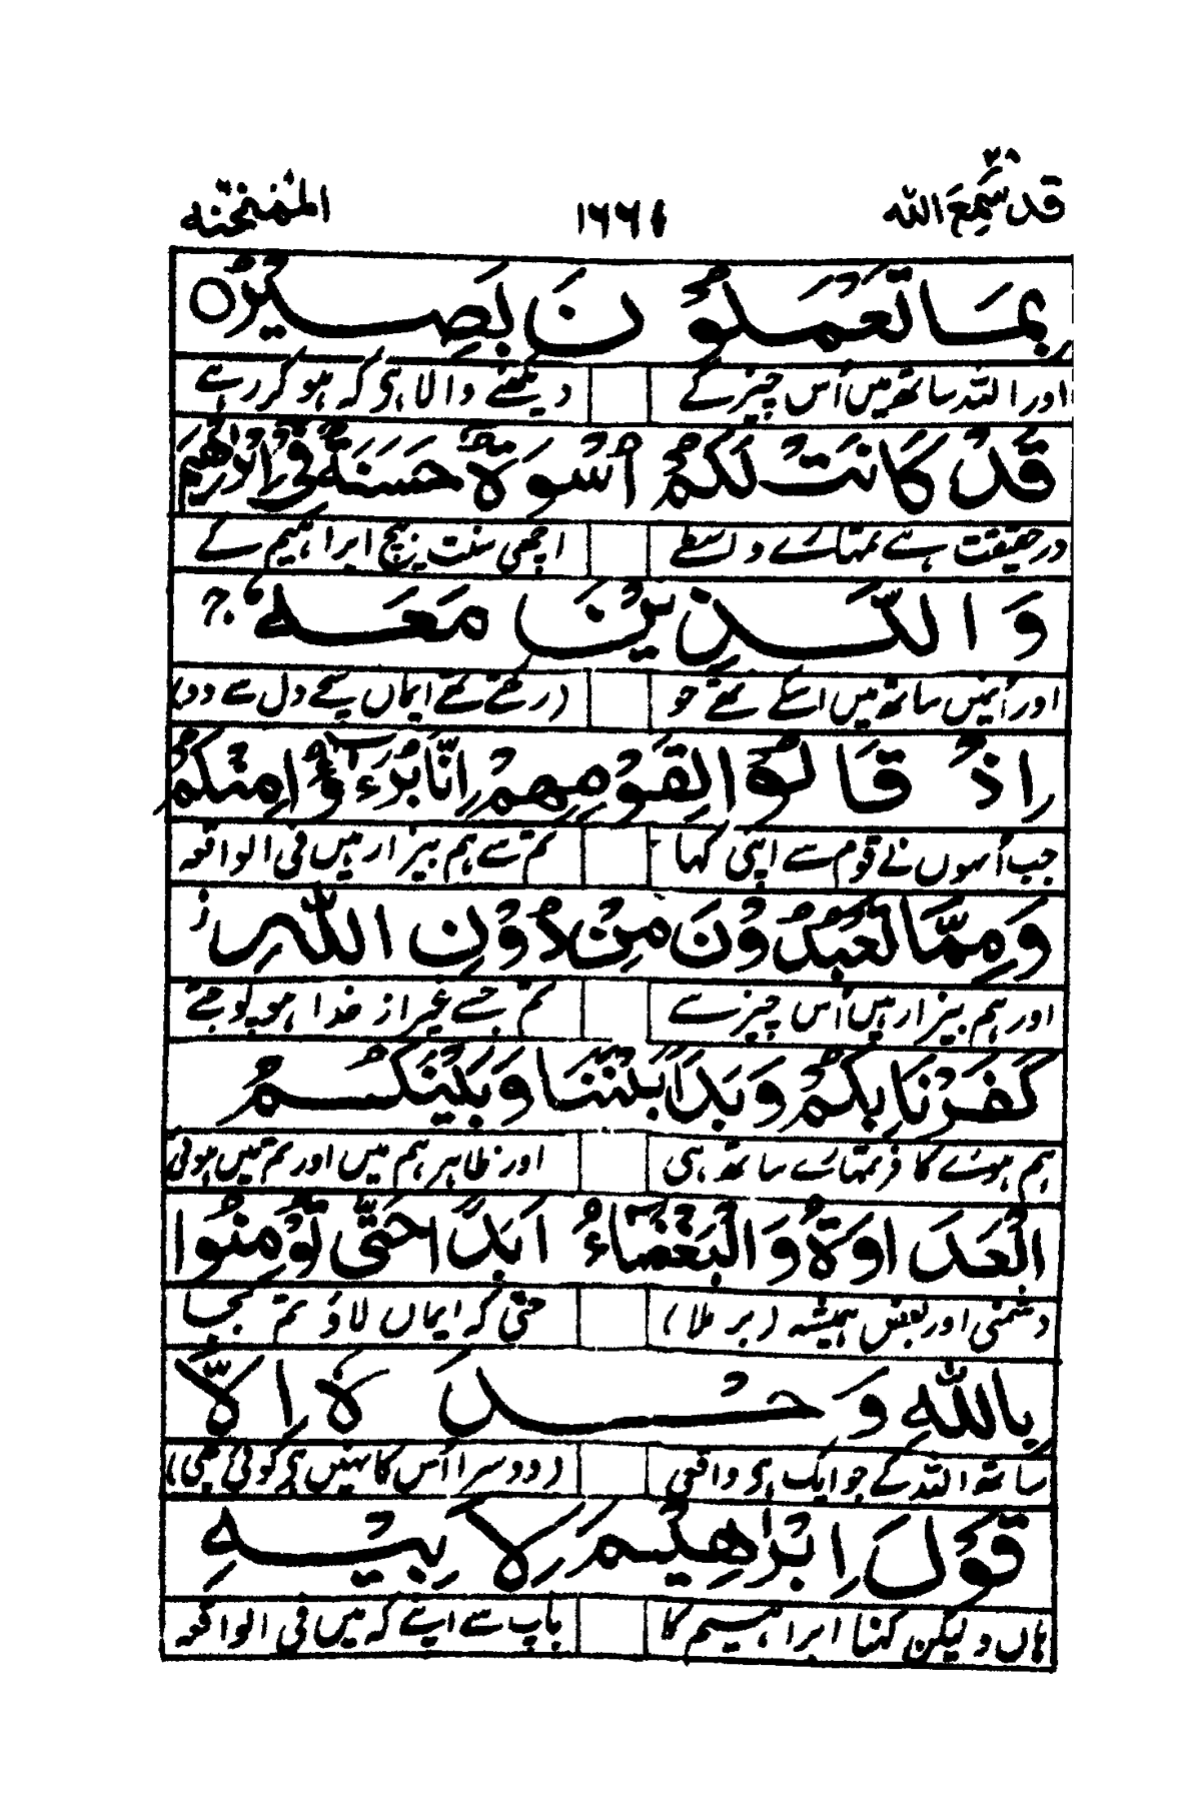 قد سمع الله ۲۸
۱۶۶۴
الممتحنه
بِمَا تَعْمَلُوْنَ بَصِيْرٌ ○
اور اللہ ساتھ میں اُس چیز کے دیکھنے والا ہی کہ ہو کر رہے
قَدْ كَانَتْ لَكُمْ اُسْوَةٌ حَسَنَةٌ فِيْ اِبْرٰهِيْمَ
درحقیقت ہے تمہارے واسطے اچھی سنت بیچ ابراہیم کے
وَالَّذِيْنَ مَعَهٗ ج
اور اُنہیں ساتھ میں اسکے تھے جو (رکھتے تھے ایماں سچے دل سے وہ)
اِذْ قَالُوْا لِقَوْمِهِمْ اِنَّا بُرَءٰٓؤُا مِنْكُمْ
جب اُنہوں نے قوم سے اپنی کہا تم سے ہم بیزار ہیں فی الواقعہ
وَمِمَّا تَعْبُدُوْنَ مِنْ دُوْنِ اللّٰهِ ز
اور ہم بیزار ہیں اُس چیز سے تم جسے غیر از خدا ہو پوجتے
كَفَرْنَا بِكُمْ وَبَدَا بَيْنَنَا وَبَيْنَكُمُ
ہم ہوئے کافر تمہارے ساتھ ہی اور ظاہر ہم میں اور تم میں ہوئی
الْعَدَاوَةُ وَالْبَغْضَآءُ اَبَدًا حَتّٰى تُؤْمِنُوْا
دشمنی اور بغض ہمیشہ (برملا) حتیٰ کہ ایماں لاؤ تم بجا
بِاللّٰهِ وَحْدَهٗ اِلَّا
ساتھ اللہ کے جو ایک ہی واقعی (دوسرا اُس کا نہیں ہی کوئی بھی)
قَوْلَ اِبْرٰهِيْمَ لِاَبِيْهِ
ہاں ولیکن کہنا ابراہیم کا باپ سے اپنے کہ میں فی الواقعہ